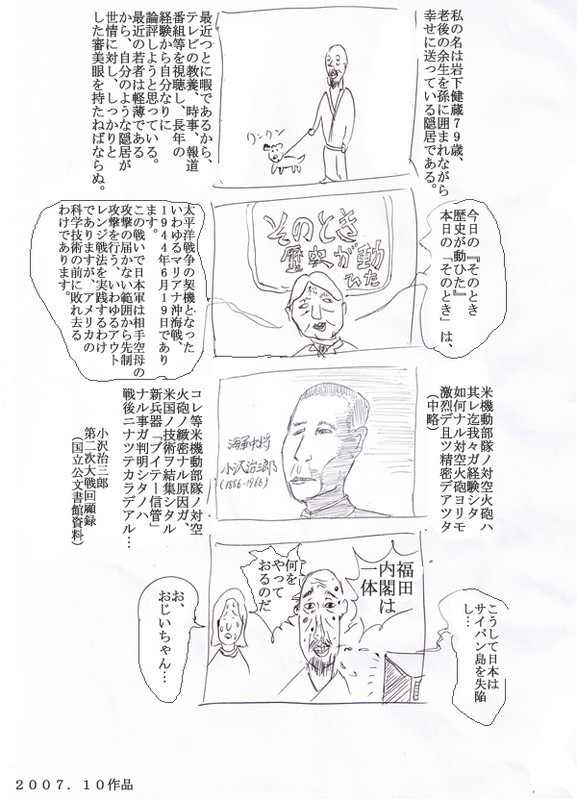 私の名は岩下健蔵79歳、
老後の余生を孫に囲まれながら
幸せに送っている隠居である。
ワンワン
最近つとに暇であるから、
テレビの教養、時事、報道
番組等を視聴し、長年の
経験から自分なりに
論評しようと思っている。
最近の若者は軽薄である
から、自分のような隠居が
世情に対し、しっかりと
した審美眼を持たねばならぬ。
今日の『そのとき
歴史が動ひた』
本日の「そのとき」は、
そのとき
歴史が動
ひた
太平洋戦争の契機となった
いわゆるマリアナ沖海戦、
1944年6月19日であり
ます。
この戦いで日本軍は相手空母の
攻撃の届かない範囲から先制
攻撃を行う、いわゆるアウト
レンジ戦法を実践するわけ
でありますが、アメリカの
科学技術の前に敗れ去る
わけであります。
米機動部隊ノ対空火砲ハ
其レ迄我々ガ経験シタ
如何ナル対空火砲ヨリモ
激烈デ且ツ精密デアツタ
(中略)
海軍中将
小沢治三郎
(1886-1966)
コレ等米機動部隊ノ対空
火砲ノ緻密ナル原因ガ、
米国ノ技術ヲ結集シタル
新兵器「ブイテー信管」
ナル事ガ判明シタノハ
戦後ニナツテカラデアル…
小沢治三郎
第二次大戦回顧録
(国立公文書館資料)
こうして日本は
サイパン島を失陥
し…
福田
内閣は
一体
何を
やって
おるのだ
お、
おじいちゃん…
2007.10作品